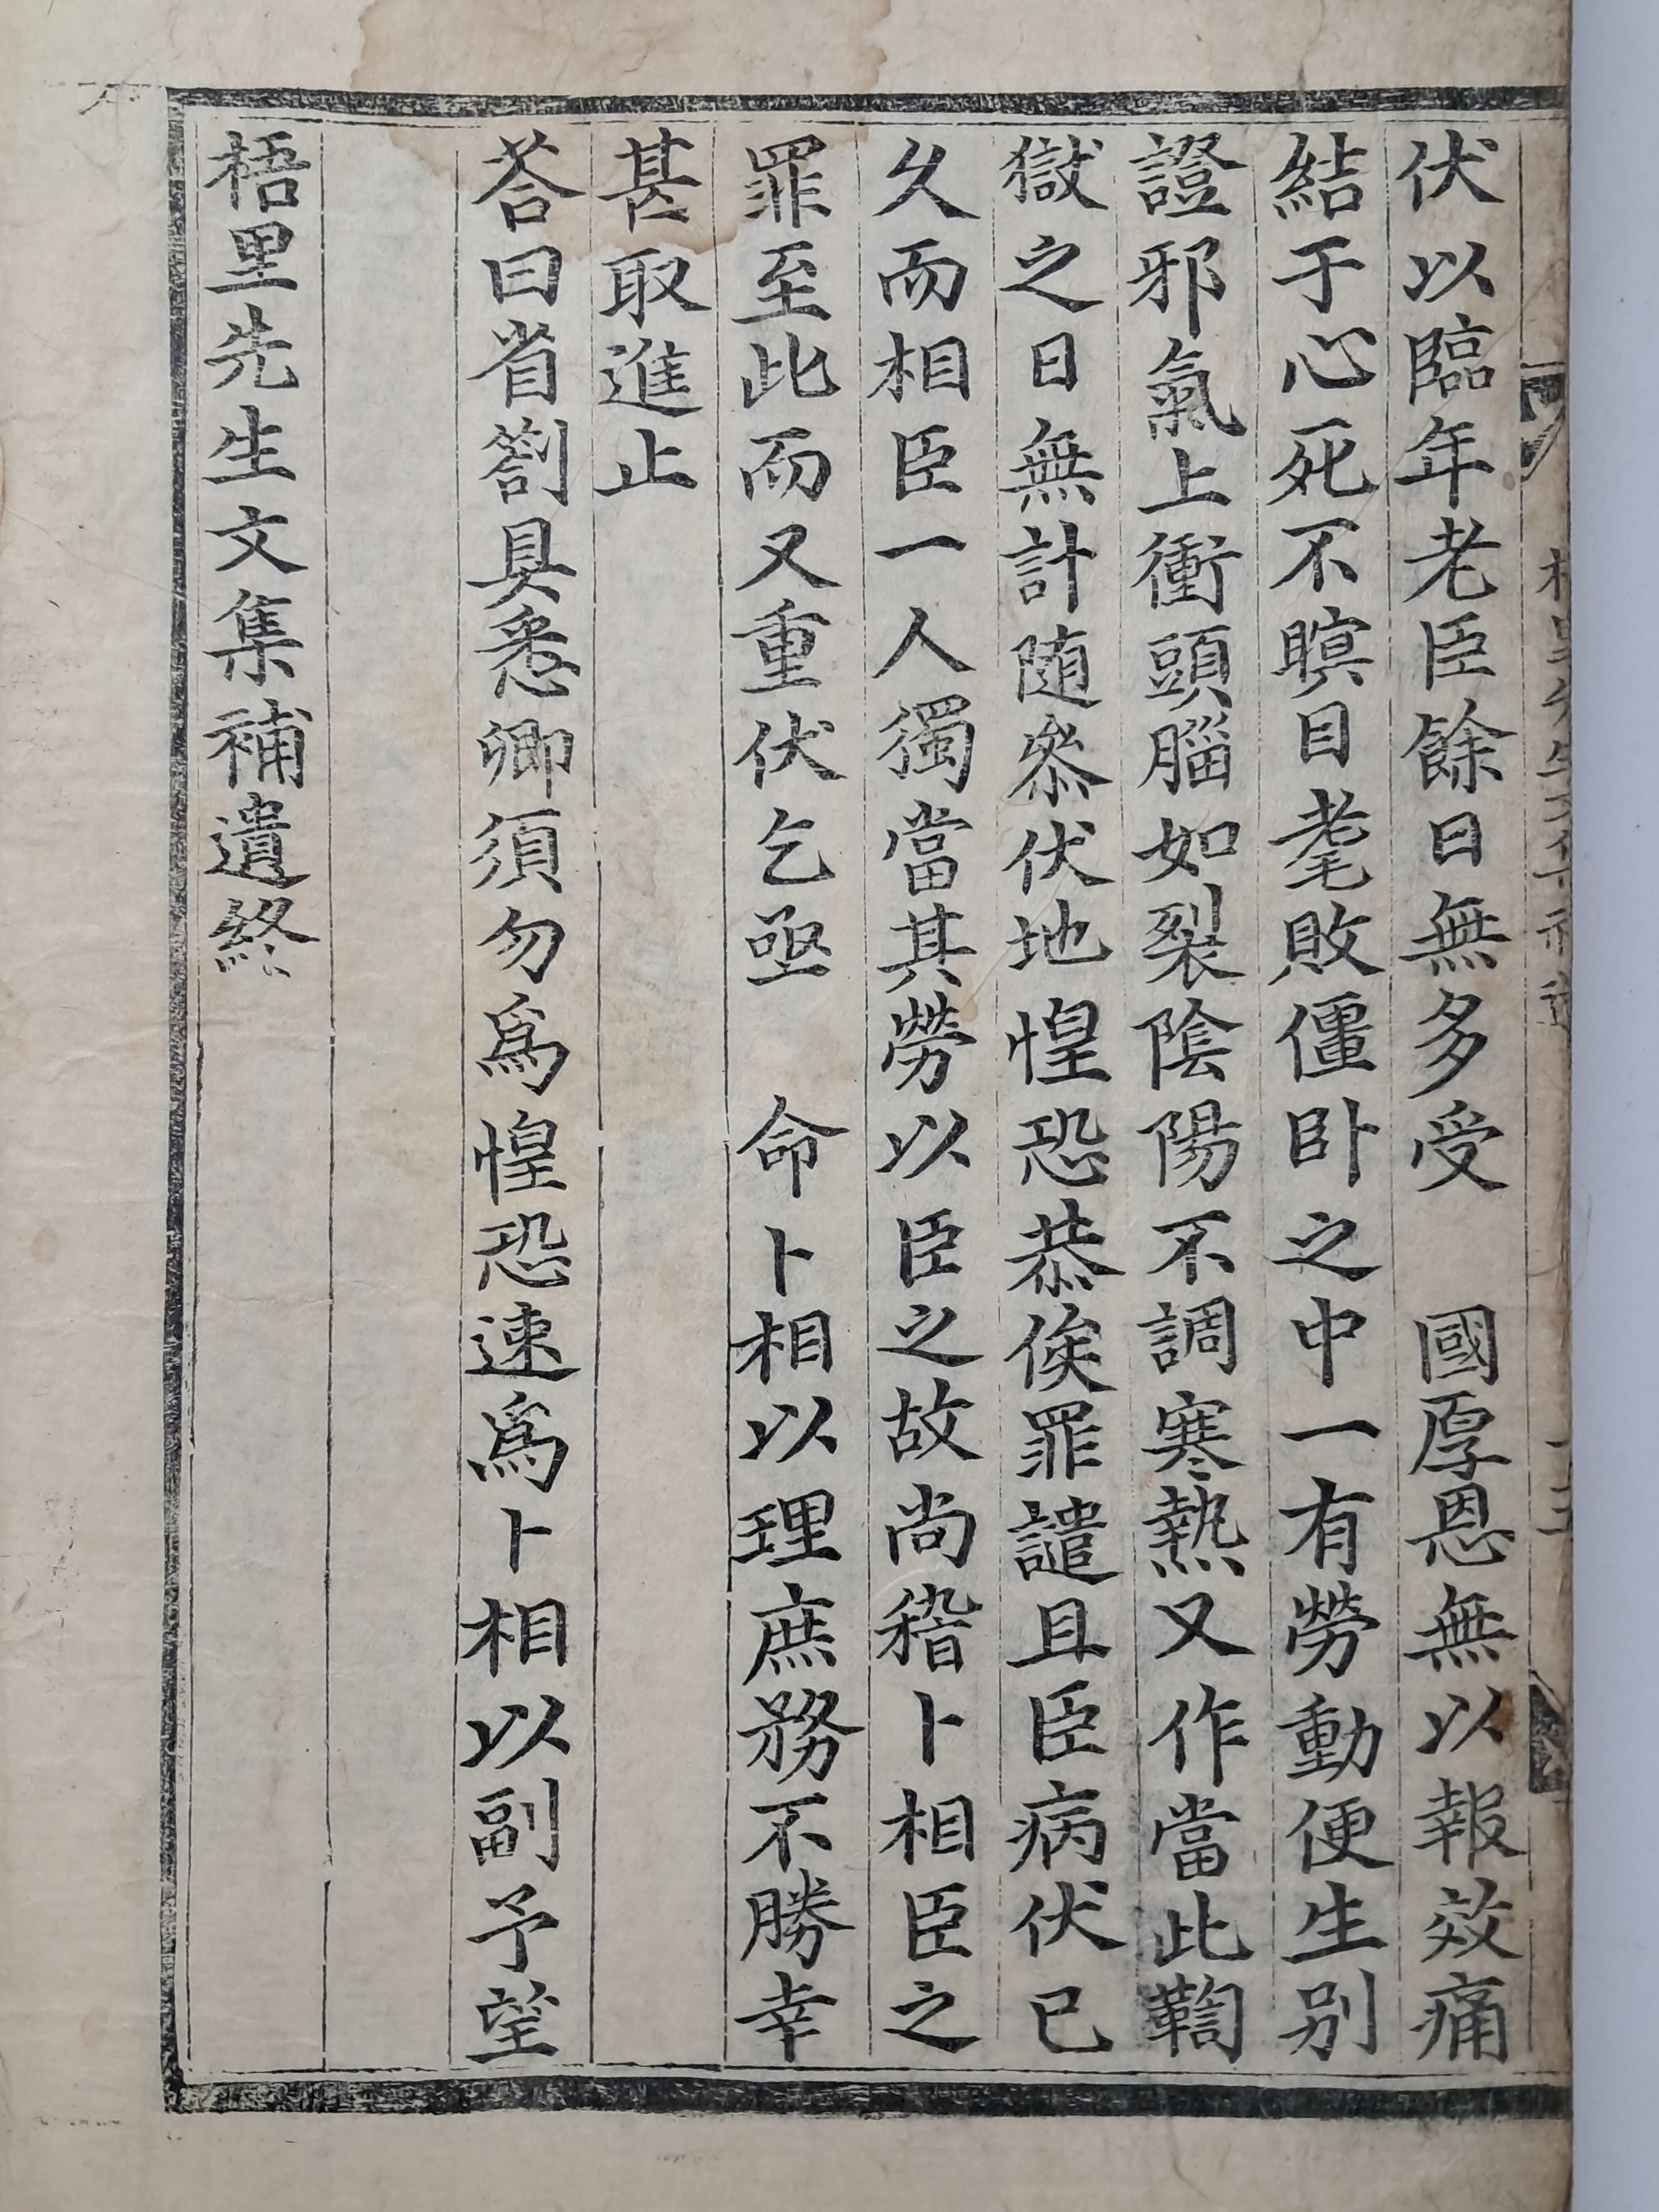 伏以臨年老臣餘日無多受　國厚恩無以報效痛
結于心死不暝目耄敗僵卧之中一有勞動便生别
證邪氣上衝頭腦如裂陰陽不調寒熱又作當此鞫
獄之日無計随叅伏地惶恐恭俟罪譴且臣病伏已
久而相臣一人獨當其勞以臣之故尚稽卜相臣之
罪至此而又重伏乞亟　命卜相以理庶務不勝幸
甚取進止
荅曰省劄具悉卿須勿爲惶恐速爲卜相以副予望
梧里先生文集補遺終